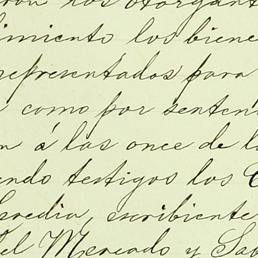 ron nos otorgant
imiento los biene
representados para
como por senten
n á las once de l
endo testigos los C
eredia, escribiente
del Mercado y Sa